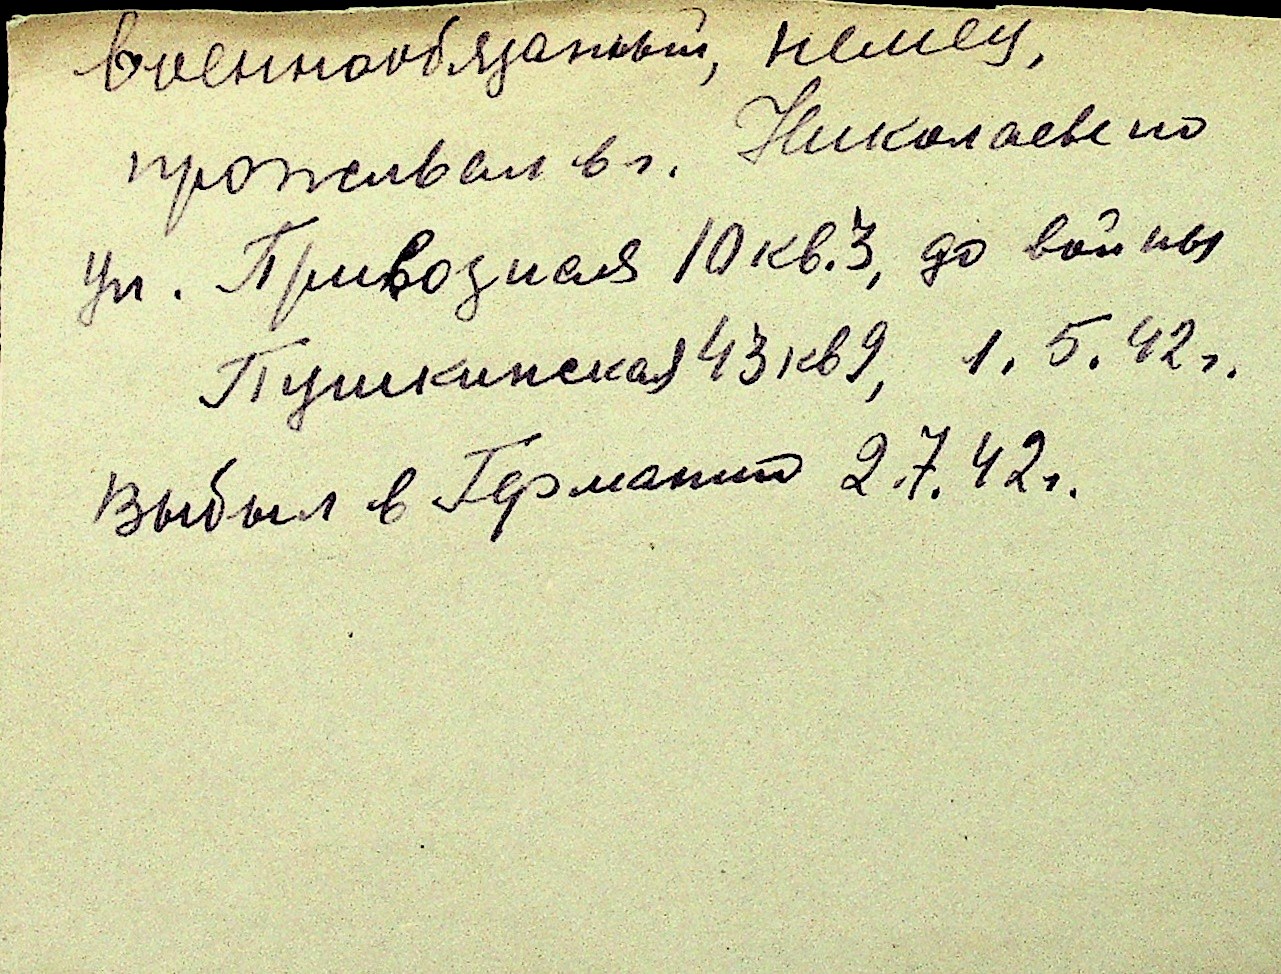 военнообязанный, немец,
проживал в г. Николаеве по
ул. Приводная 10 кв. 3, до войны
Пушкинская 43 кв 9, 1. 5. 42 г.
выбыл в Германию 2.7.42 г.